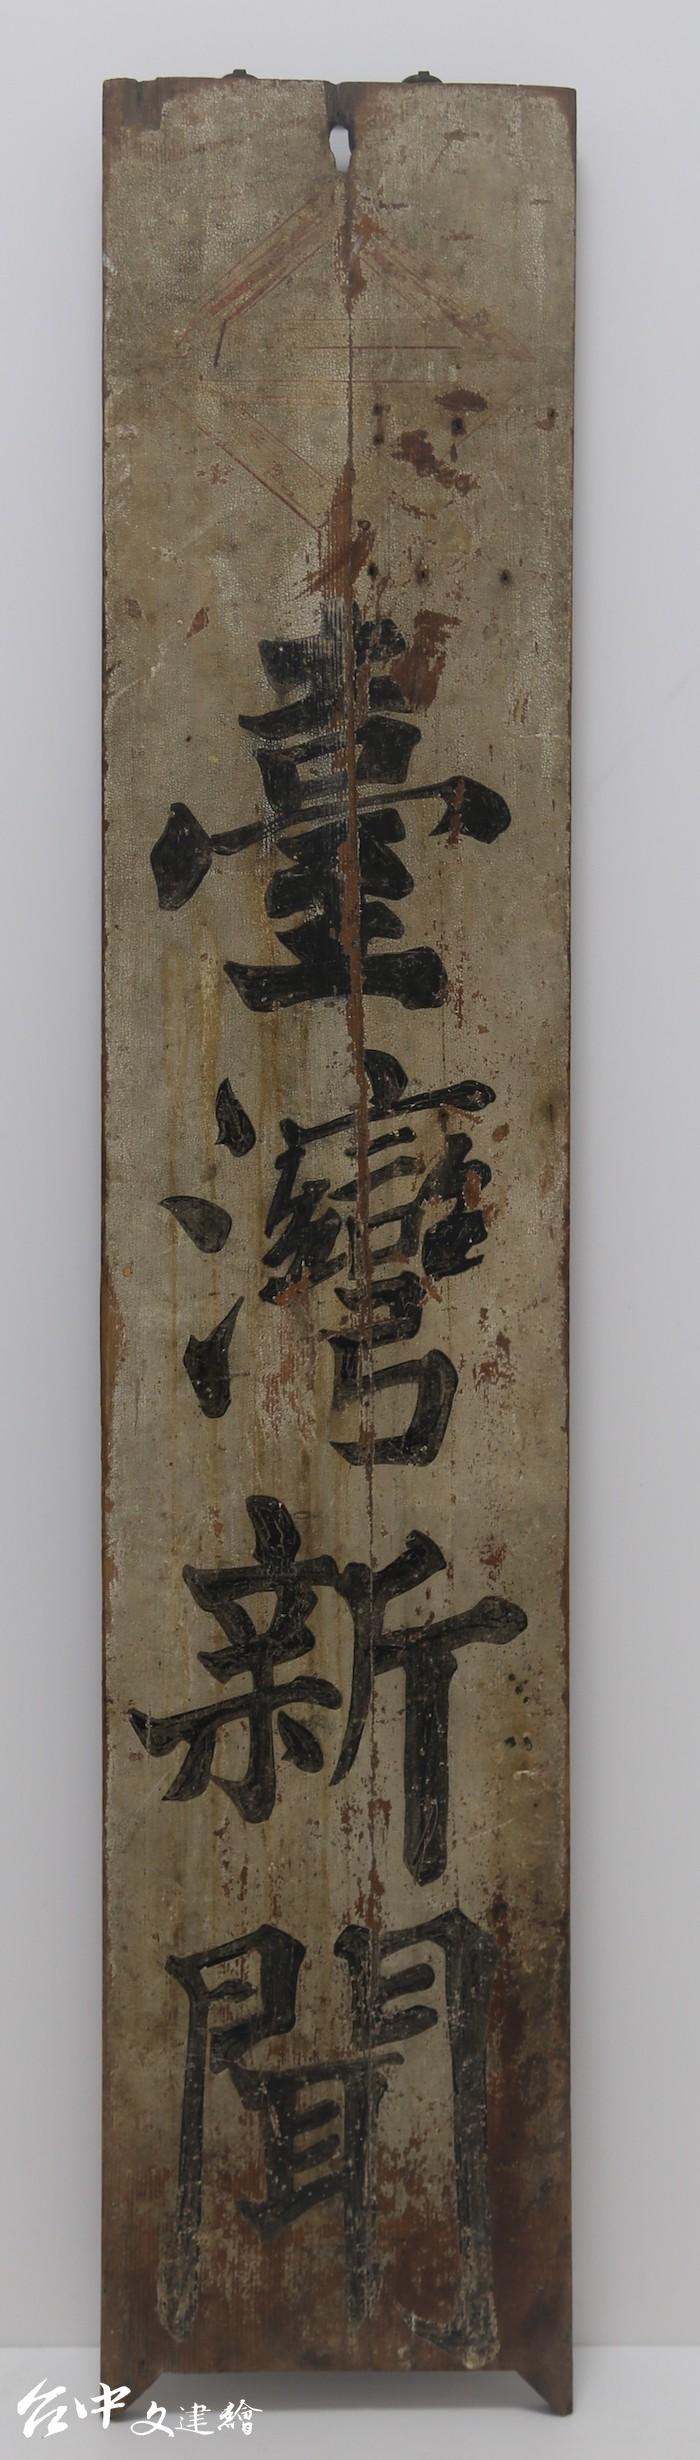 臺灣新聞
台中文建繪